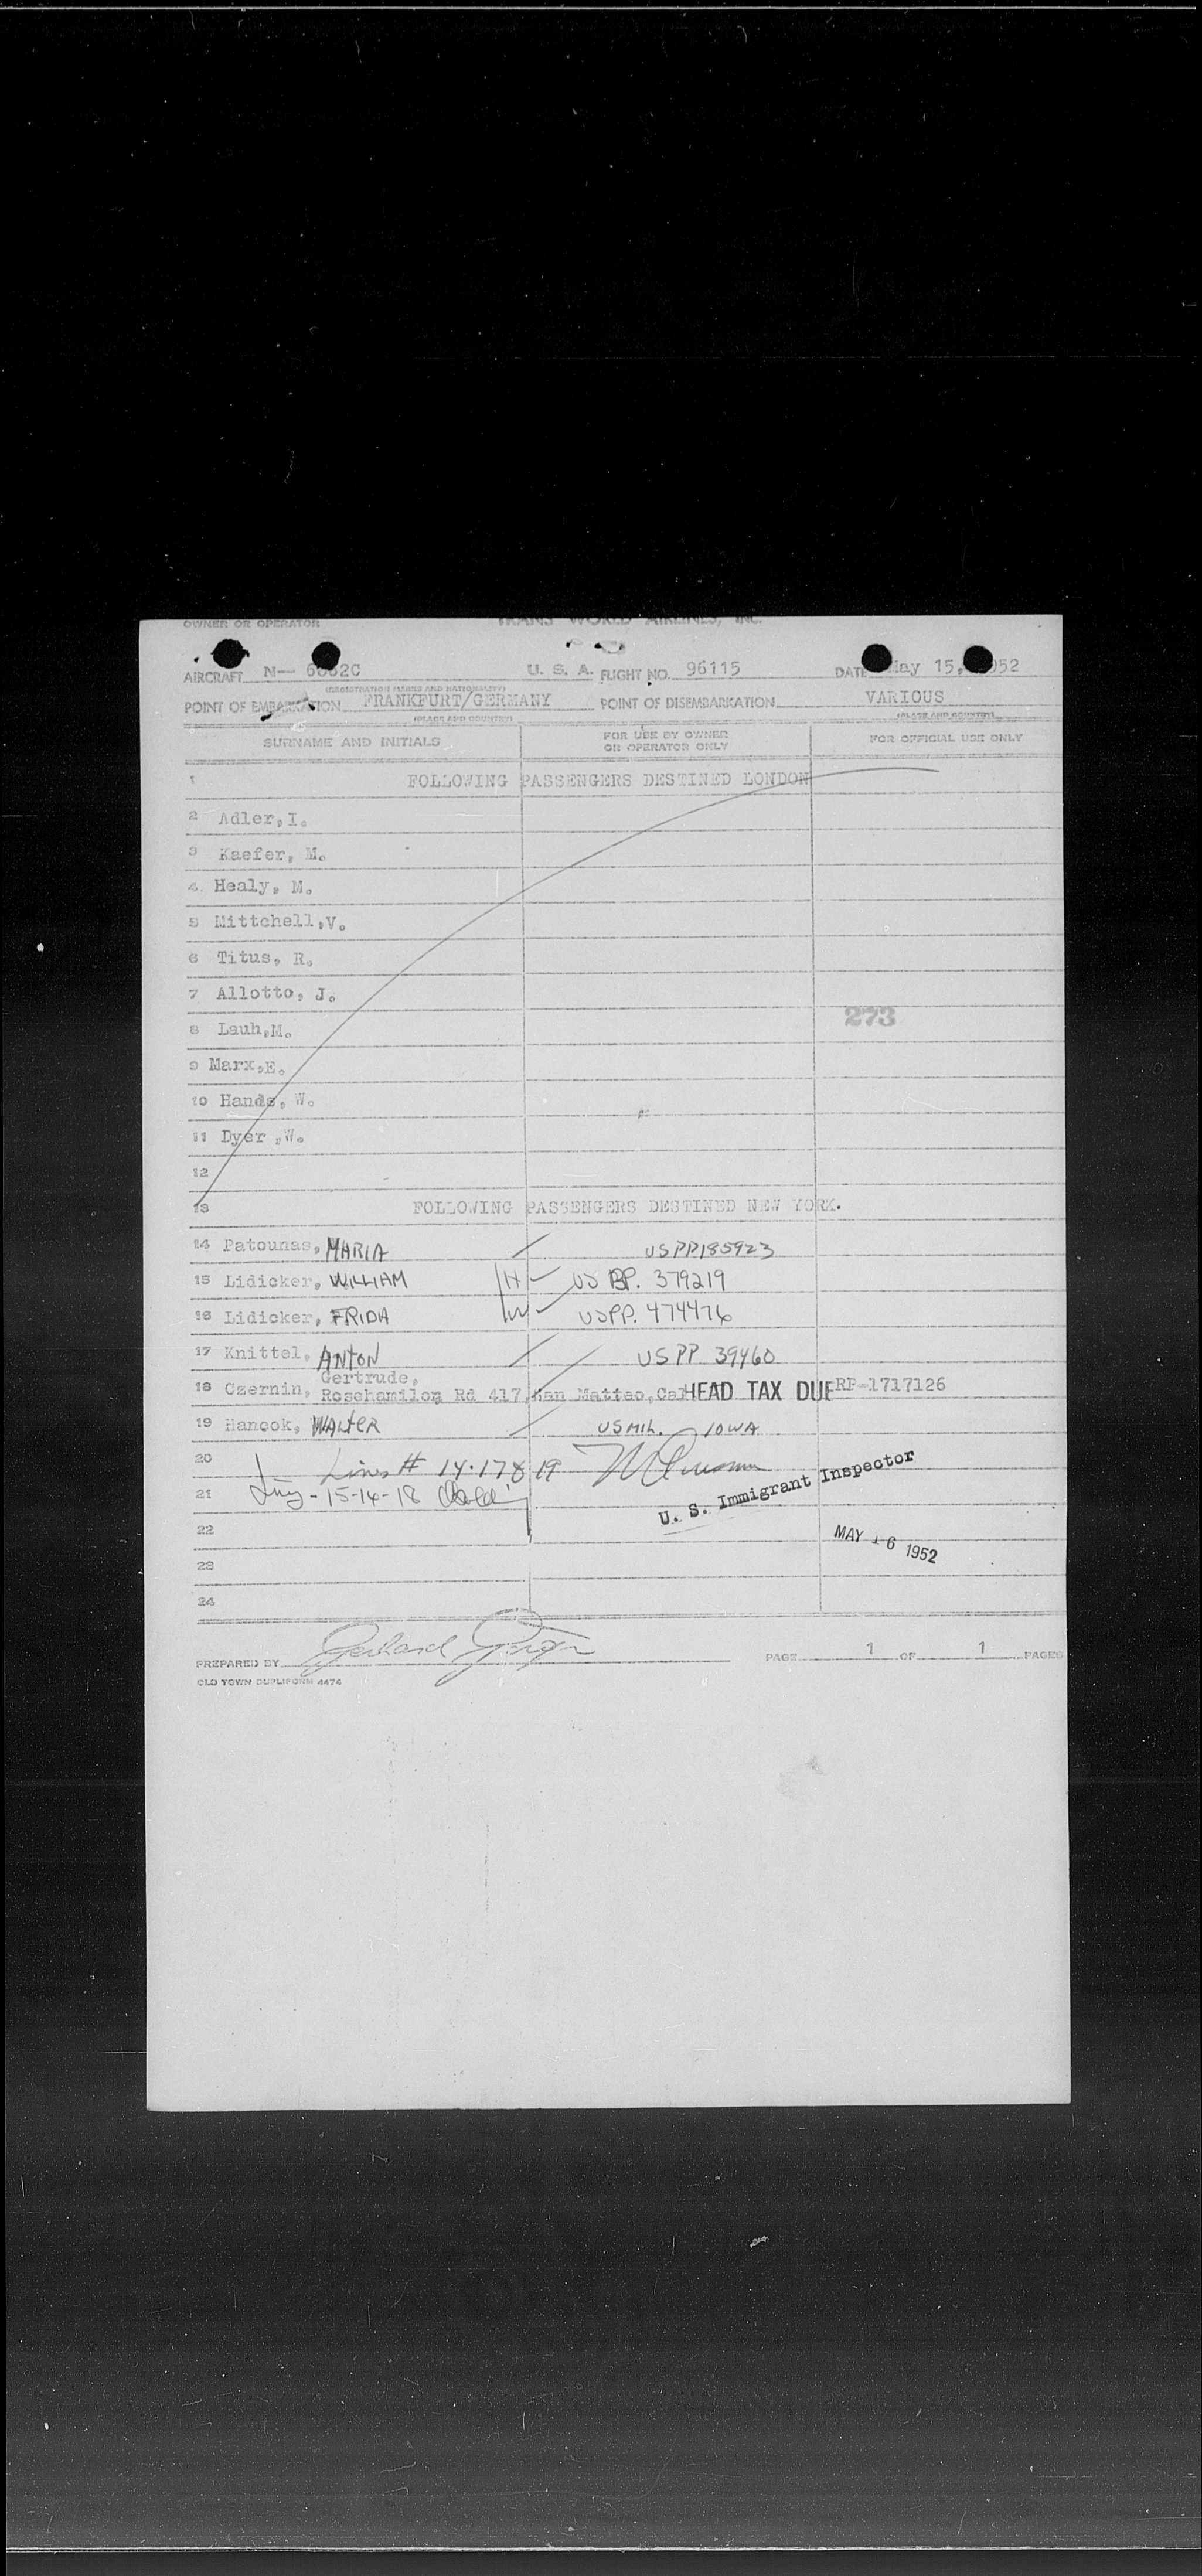 OWNER OR OPERATOR TRANS WORLD AIRLINES, INC.
AIRCRAFT N— 6 2C U. S. A. FLIGHT NO. 96115 DATE May 15, 1952
(REGISTRATION MARKS AND NATIONALITY)
POINT OF EMBARKATION FRANKFURT/GERMANY POINT OF DISEMBARKATION VARIOUS
(PLACE AND COUNTRY) (PLACE AND COUNTRY)
SURNAME AND INITIALS FOR USE BY OWNER OR OPERATOR ONLY FOR OFFICIAL USE ONLY
1 FOLLOWING PASSENGERS DESTINED LONDON
2 Adler,I.
3 Kaefer, M.
4 Healy, M.
5 Mittchell,V.
6 Titus, R.
7 Allotto, J.
273
8 Lauh,M.
9 Marx,E.
10 Hands, W.
11 Dyer ,W.
12
13 FOLLOWING PASSENGERS DESTINED NEW YORK.
14 Patounas, MARIA USPP185923
15 Lidicker, WILLIAM H US PP. 379219
16 Lidicker, FRIDA W USPP. 474476
17 Knittel, ANTON USPP 39460
Gertrude,
18 Czernin, Rosehamilon Rd 417,San Matteo,Cal HEAD TAX DUE RP-1717126
19 Hancok, WALTER US MIL. IOWA
20 Lines # 14.17 & 19
21 -15-16-18
U. S. Immigrant Inspector
22
MAY 16 1952
23
24
PREPARED BY Gerhard PAGE 1 OF 1 PAGES
OLD TOWN DUPLIFORM 4474